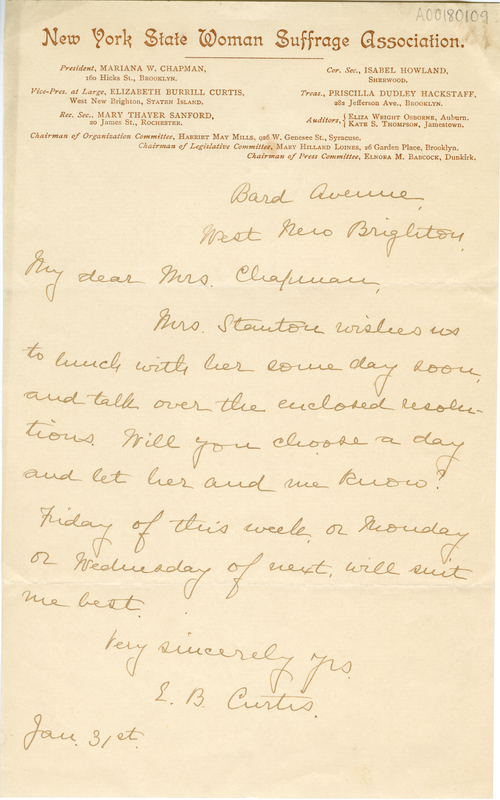 A00180109
New York State Woman Suffrage Association.
President, MARIANA W. CHAPMAN,
160 Hicks St., BROOKLYN.
Vice-Pres. at Large, ELIZABETH BURRILL CURTIS,
West New Brighton, STATEN ISLAND.
Rec. Sec., MARY THAYER SANFORD,
20 James St., ROCHESTER.
Cor. Sec., ISABEL HOWLAND,
SHERWOOD.
Treas., PRISCILLA DUDLEY HACKSTAFF,
282 Jefferson Ave., BROOKLYN.
Auditors, { ELIZA WRIGHT OSBORNE, Auburn.
KATE S. THOMPSON, Jamestown.
Chairman of Organization Committee, HARRIET MAY MILLS, 926 W. Genesee St., Syracuse.
Chairman of Legislative Committee, MARY HILLARD LOINES, 26 Garden Place, Brooklyn.
Chairman of Press Committee, ELNORA M. BABCOCK, Dunkirk.
Bard Avenue,
West New Brighton,
My dear Mrs. Chapman,
Mrs. Stanton wishes us
to lunch with her some day soon,
and talk over the enclosed resolu-
tions. Will you choose a day
and let her and me know?
Friday of this week, or Monday
or Wednesday of next, will suit
me best.
Very sincerely yrs.
E. B. Curtis.
Jan. 31st.